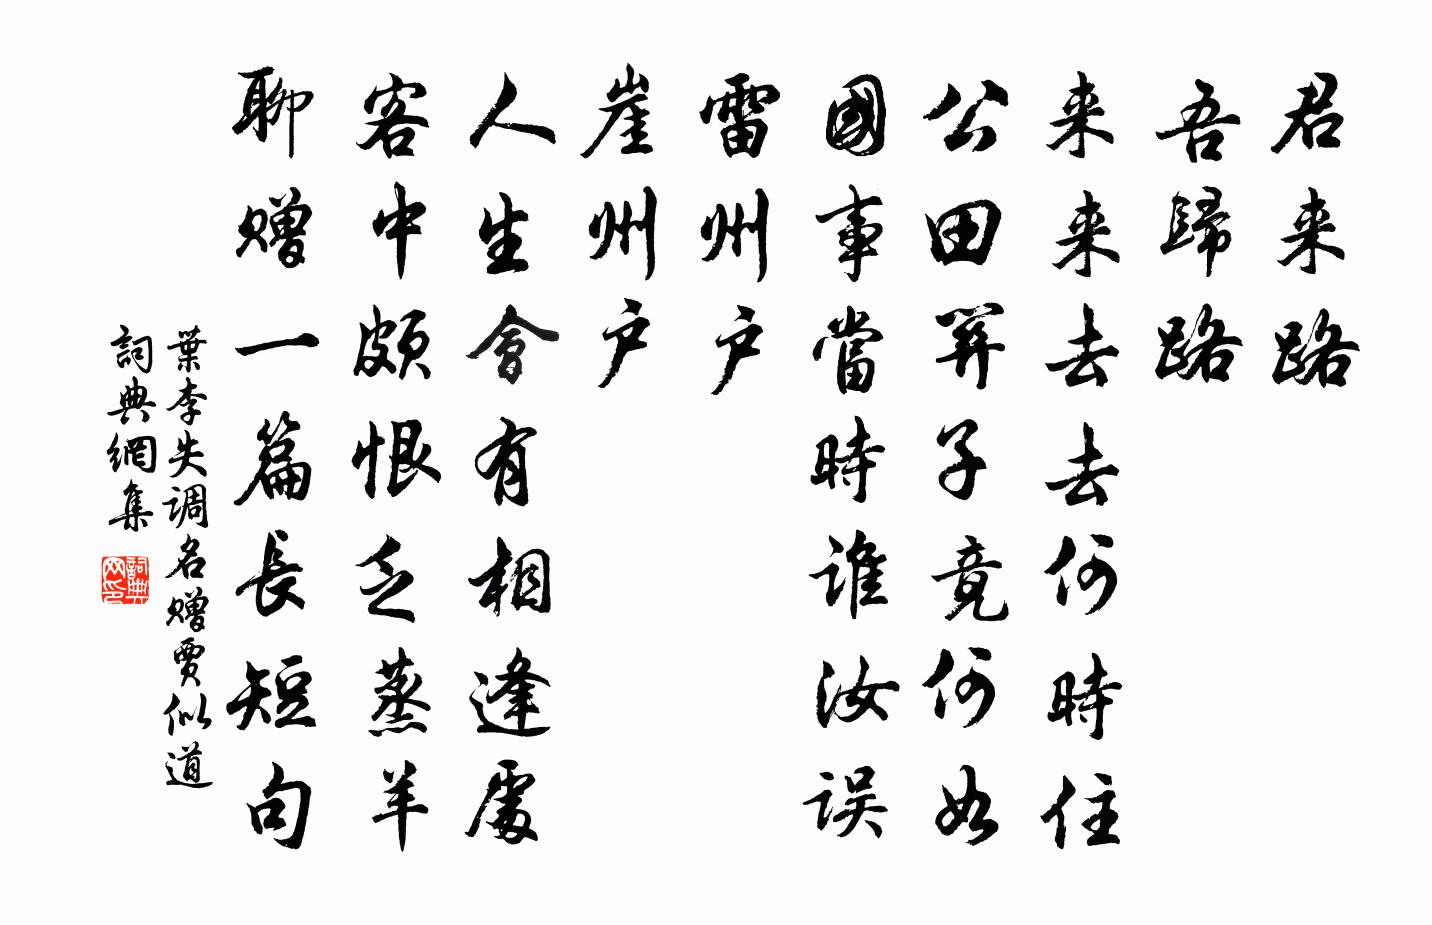 君来路
吾歸路
来来去去何時住
公田關子竟何如
國事當時誰汝误
雷州户
崖州户
人生會有相逢處
客中頗恨乏蒸羊
聊赠一篇長短句
葉李失调名赠贾似道
詞典網集
詞典网印